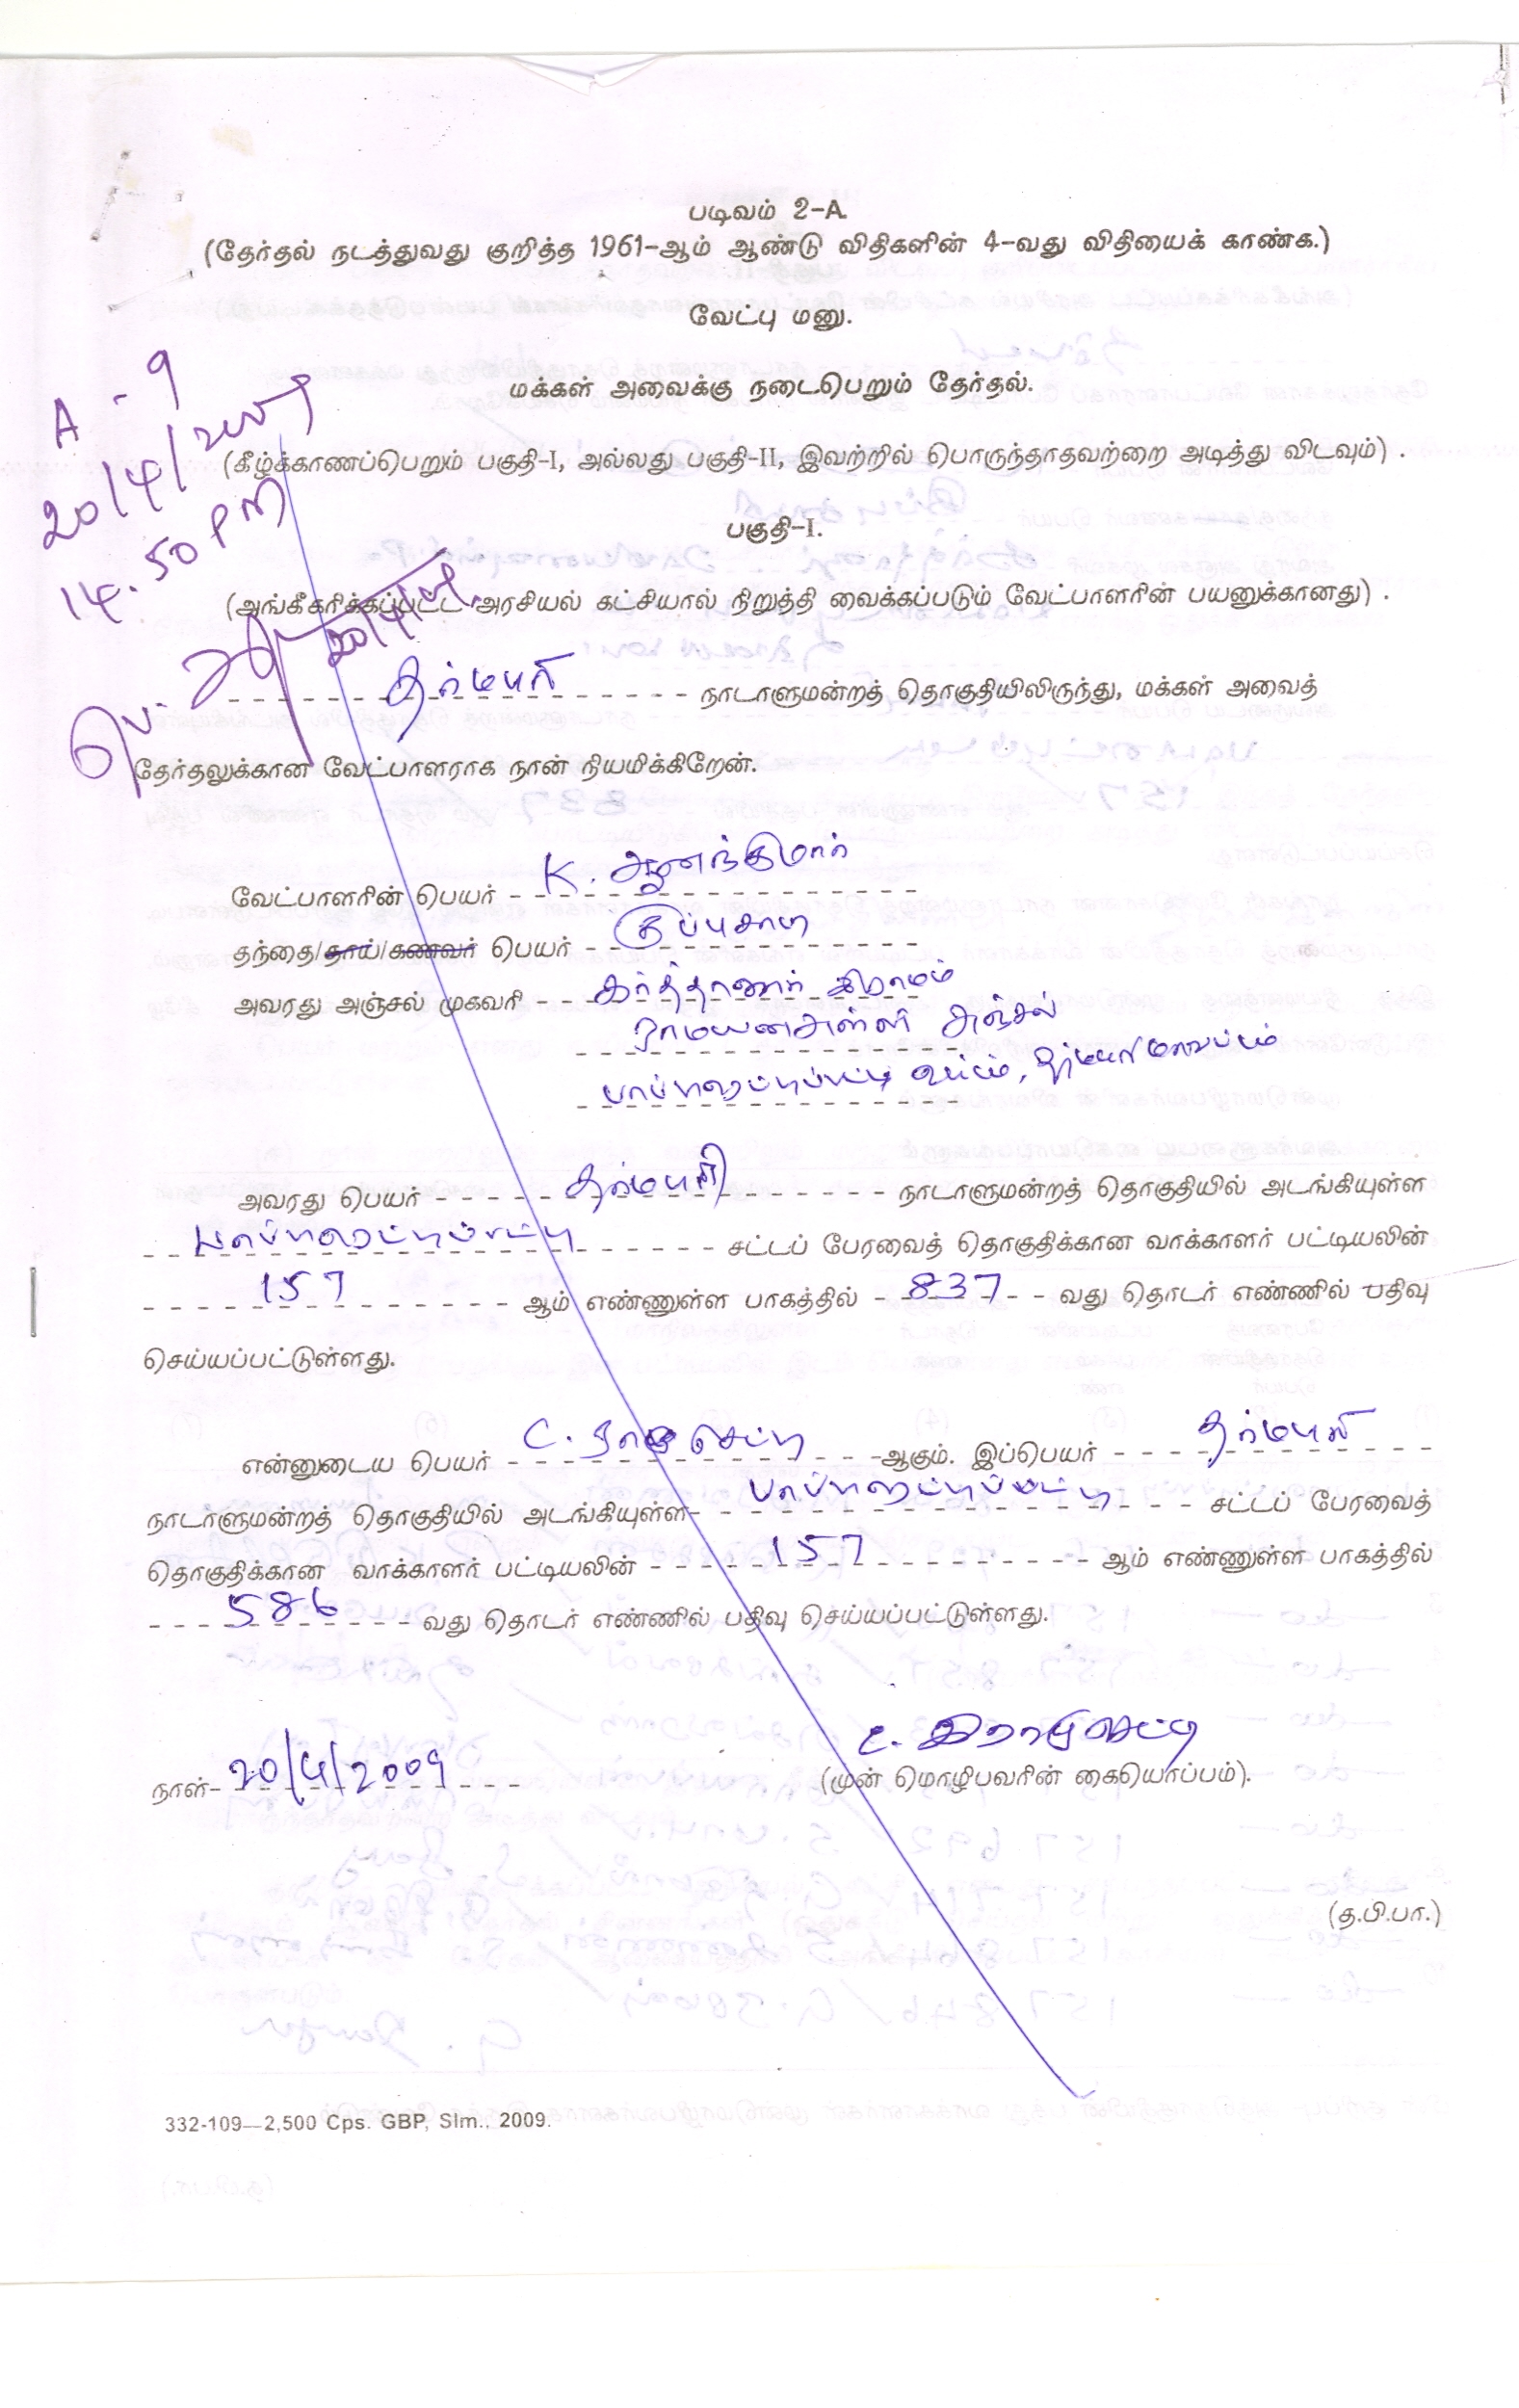 படிவம் 2-A.
(தேர்தல் நடத்துவது குறித்த 1961-ஆம் ஆண்டு விதிகளின் 4-வது விதியைக் காண்க.)
வேட்பு மனு.
A - 9
20/4/2009
14.50 PM
மக்கள் அவைக்கு நடைபெறும் தேர்தல்.
(கீழ்க்காணப்பெறும் பகுதி-I, அல்லது பகுதி-II, இவற்றில் பொருந்தாதவற்றை அடித்து விடவும்) .
பகுதி-I.
(அங்கீகரிக்கப்பட்ட அரசியல் கட்சியால் நிறுத்தி வைக்கப்படும் வேட்பாளரின் பயனுக்கானது) .
20/4/09
தர்மபுரி நாடாளுமன்றத் தொகுதியிலிருந்து, மக்கள் அவைத்
தேர்தலுக்கான வேட்பாளராக நான் நியமிக்கிறேன்.
வேட்பாளரின் பெயர் K. ஆனந்குமார்
தந்தை/தாய்/கணவர் பெயர் குப்புசாமி
அவரது அஞ்சல் முகவரி கர்த்தானூர் கிராமம்
ராமயனஅள்ளி அஞ்சல்
பாப்பிரெட்டிப்பட்டி வட்டம், தர்மபுரி மாவட்டம்
அவரது பெயர் தர்மபுரி நாடாளுமன்றத் தொகுதியில் அடங்கியுள்ள
பாப்பிரெட்டிப்பட்டி சட்டப் பேரவைத் தொகுதிக்கான வாக்காளர் பட்டியலின்
157 ஆம் எண்ணுள்ள பாகத்தில் 837 வது தொடர் எண்ணில் பதிவு
செய்யப்பட்டுள்ளது.
என்னுடைய பெயர் C. ராமு செட்டி ஆகும். இப்பெயர் தர்மபுரி
நாடாளுமன்றத் தொகுதியில் அடங்கியுள்ள பாப்பிரெட்டிப்பட்டி சட்டப் பேரவைத்
தொகுதிக்கான வாக்காளர் பட்டியலின் 157 ஆம் எண்ணுள்ள பாகத்தில்
586 வது தொடர் எண்ணில் பதிவு செய்யப்பட்டுள்ளது.
C. இராமுசெட்டி
நாள் 20/4/2009 (முன் மொழிபவரின் கையொப்பம்).
(த.பி.பா.)
332-109—2,500 Cps. GBP, Slm., 2009.